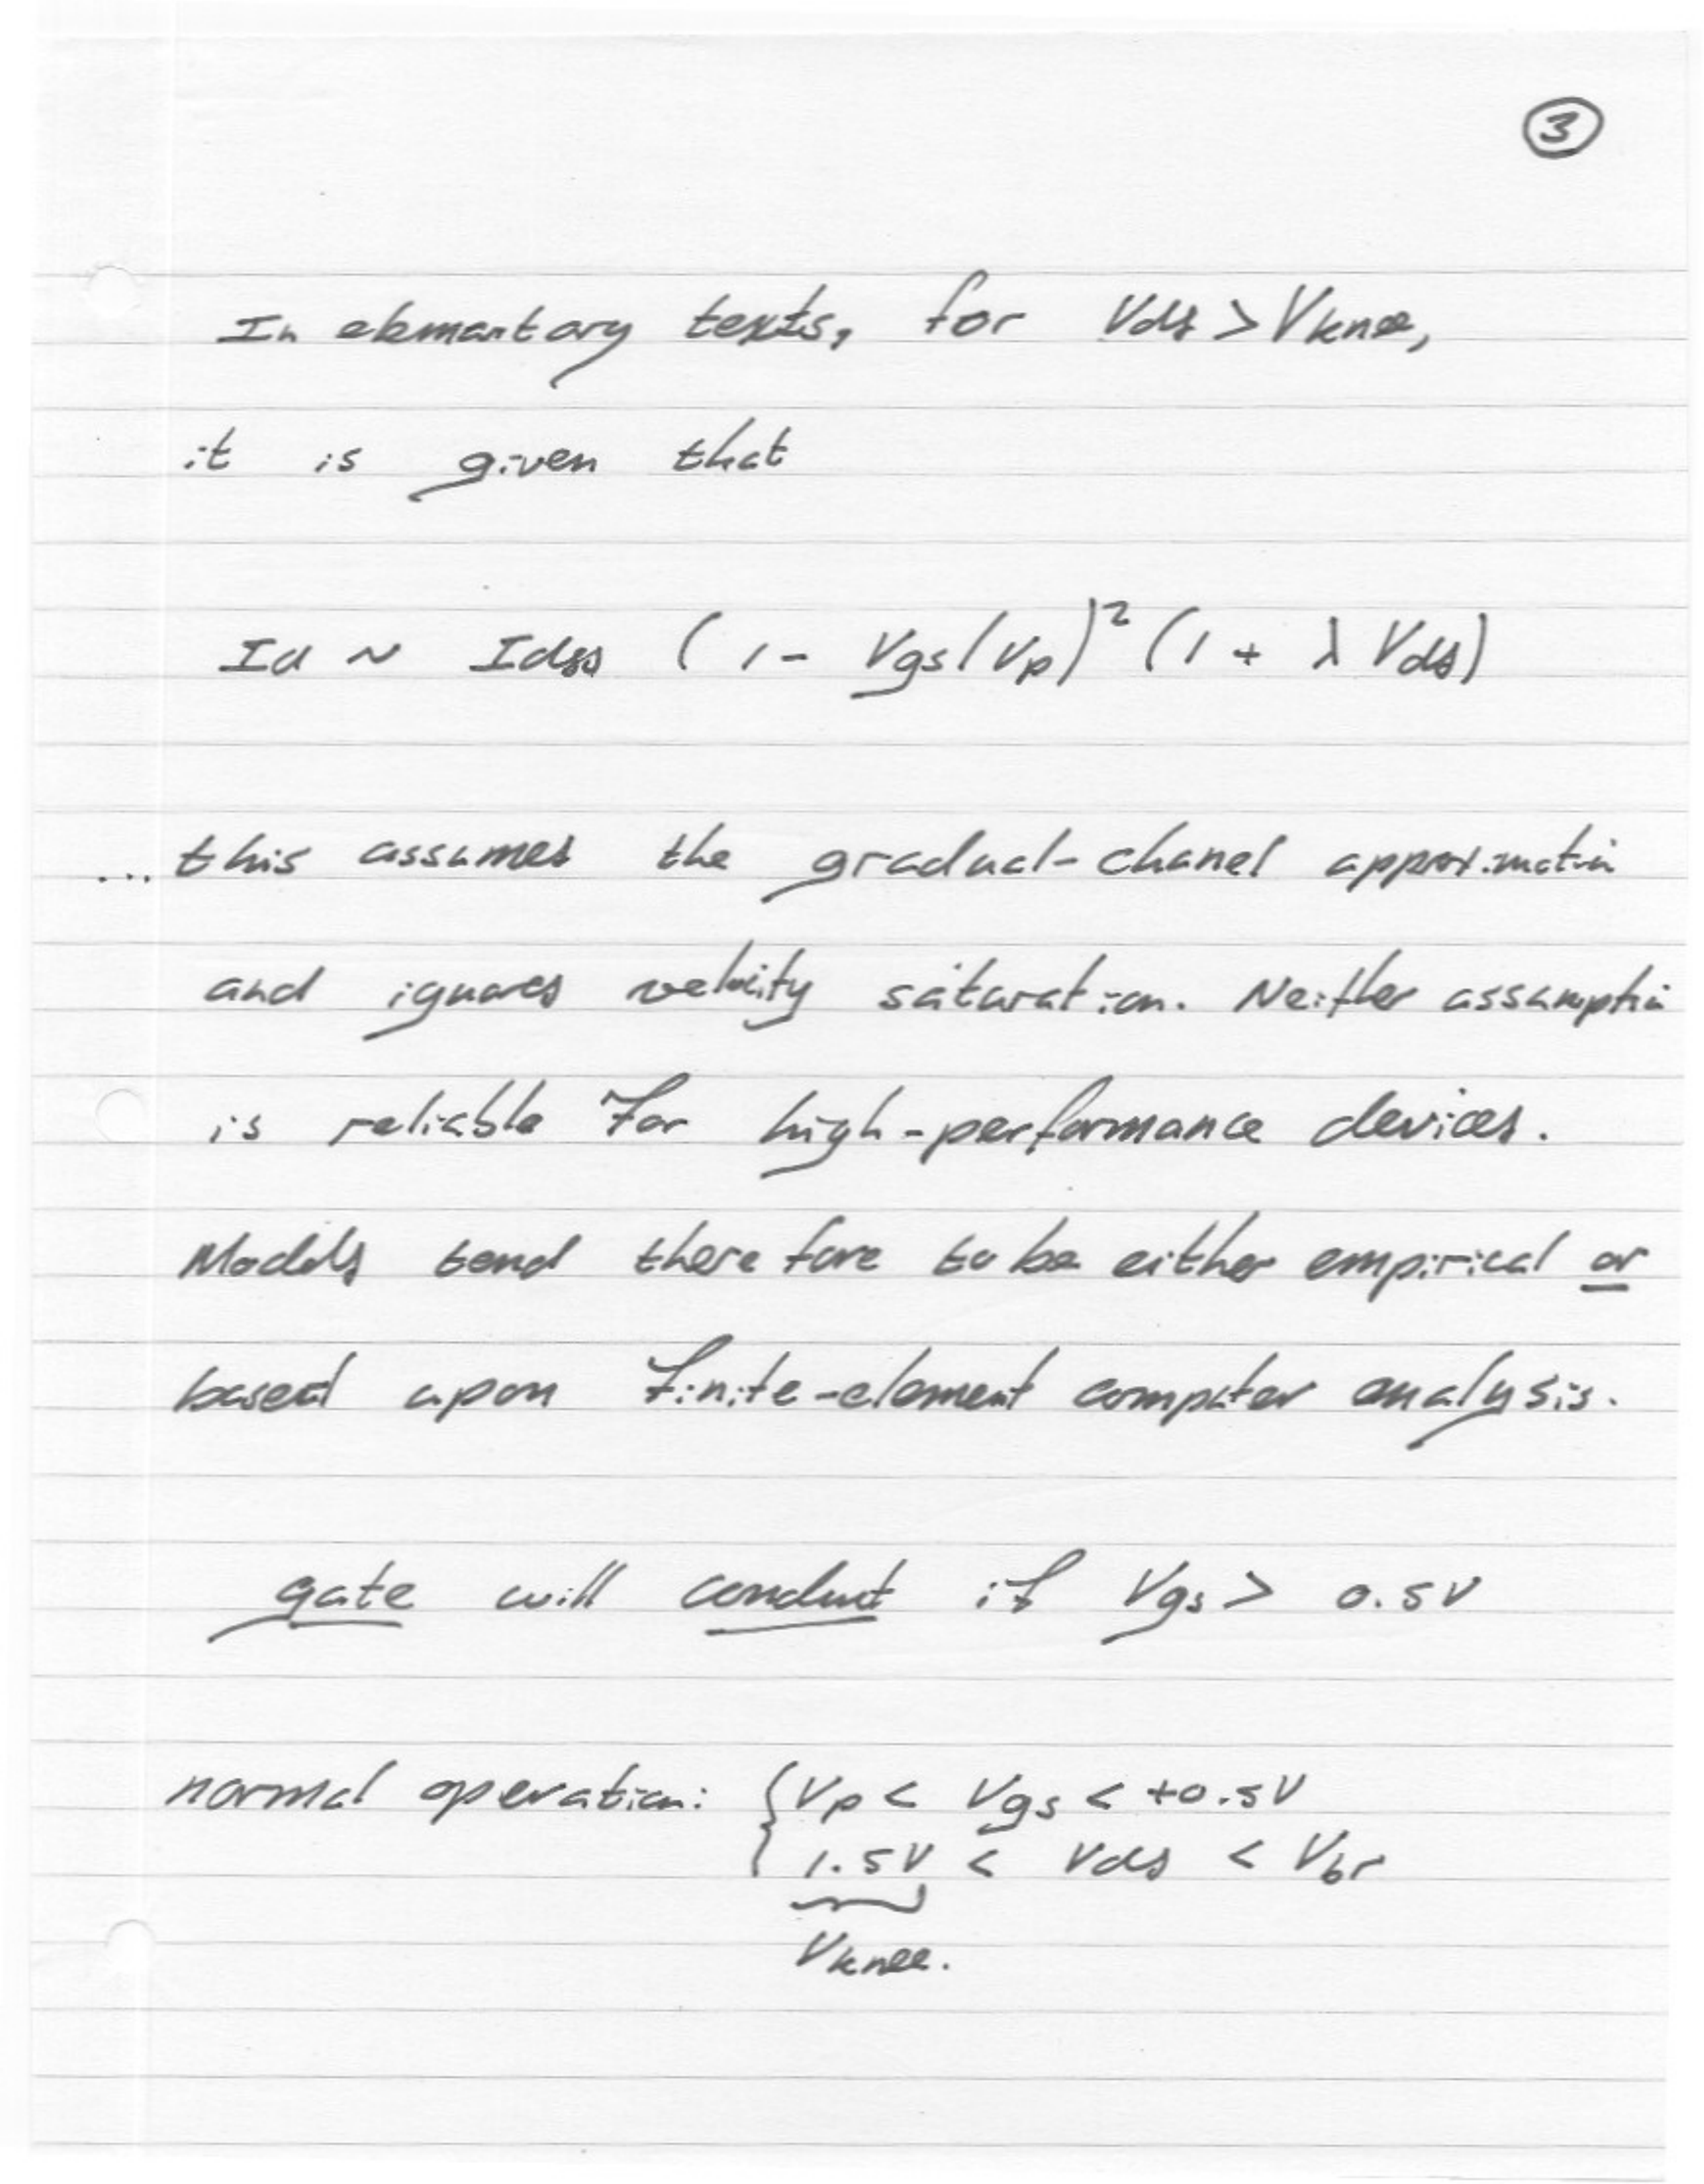 3
In elementary texts, for Vds > Vknee,
it is given that
Id ~ Idss (1 - Vgs/Vp)² (1 + λ Vds)
... this assumes the gradual-chanel approximation
and ignores velocity saturation. Neither assumption
is reliable for high-performance devices.
Models tend therefore to be either empirical or
based upon finite-element computer analysis.
gate will conduct if Vgs > 0.5V
normal operation: { Vp < Vgs < +0.5V
1.5V < Vds < Vbr
Vknee.